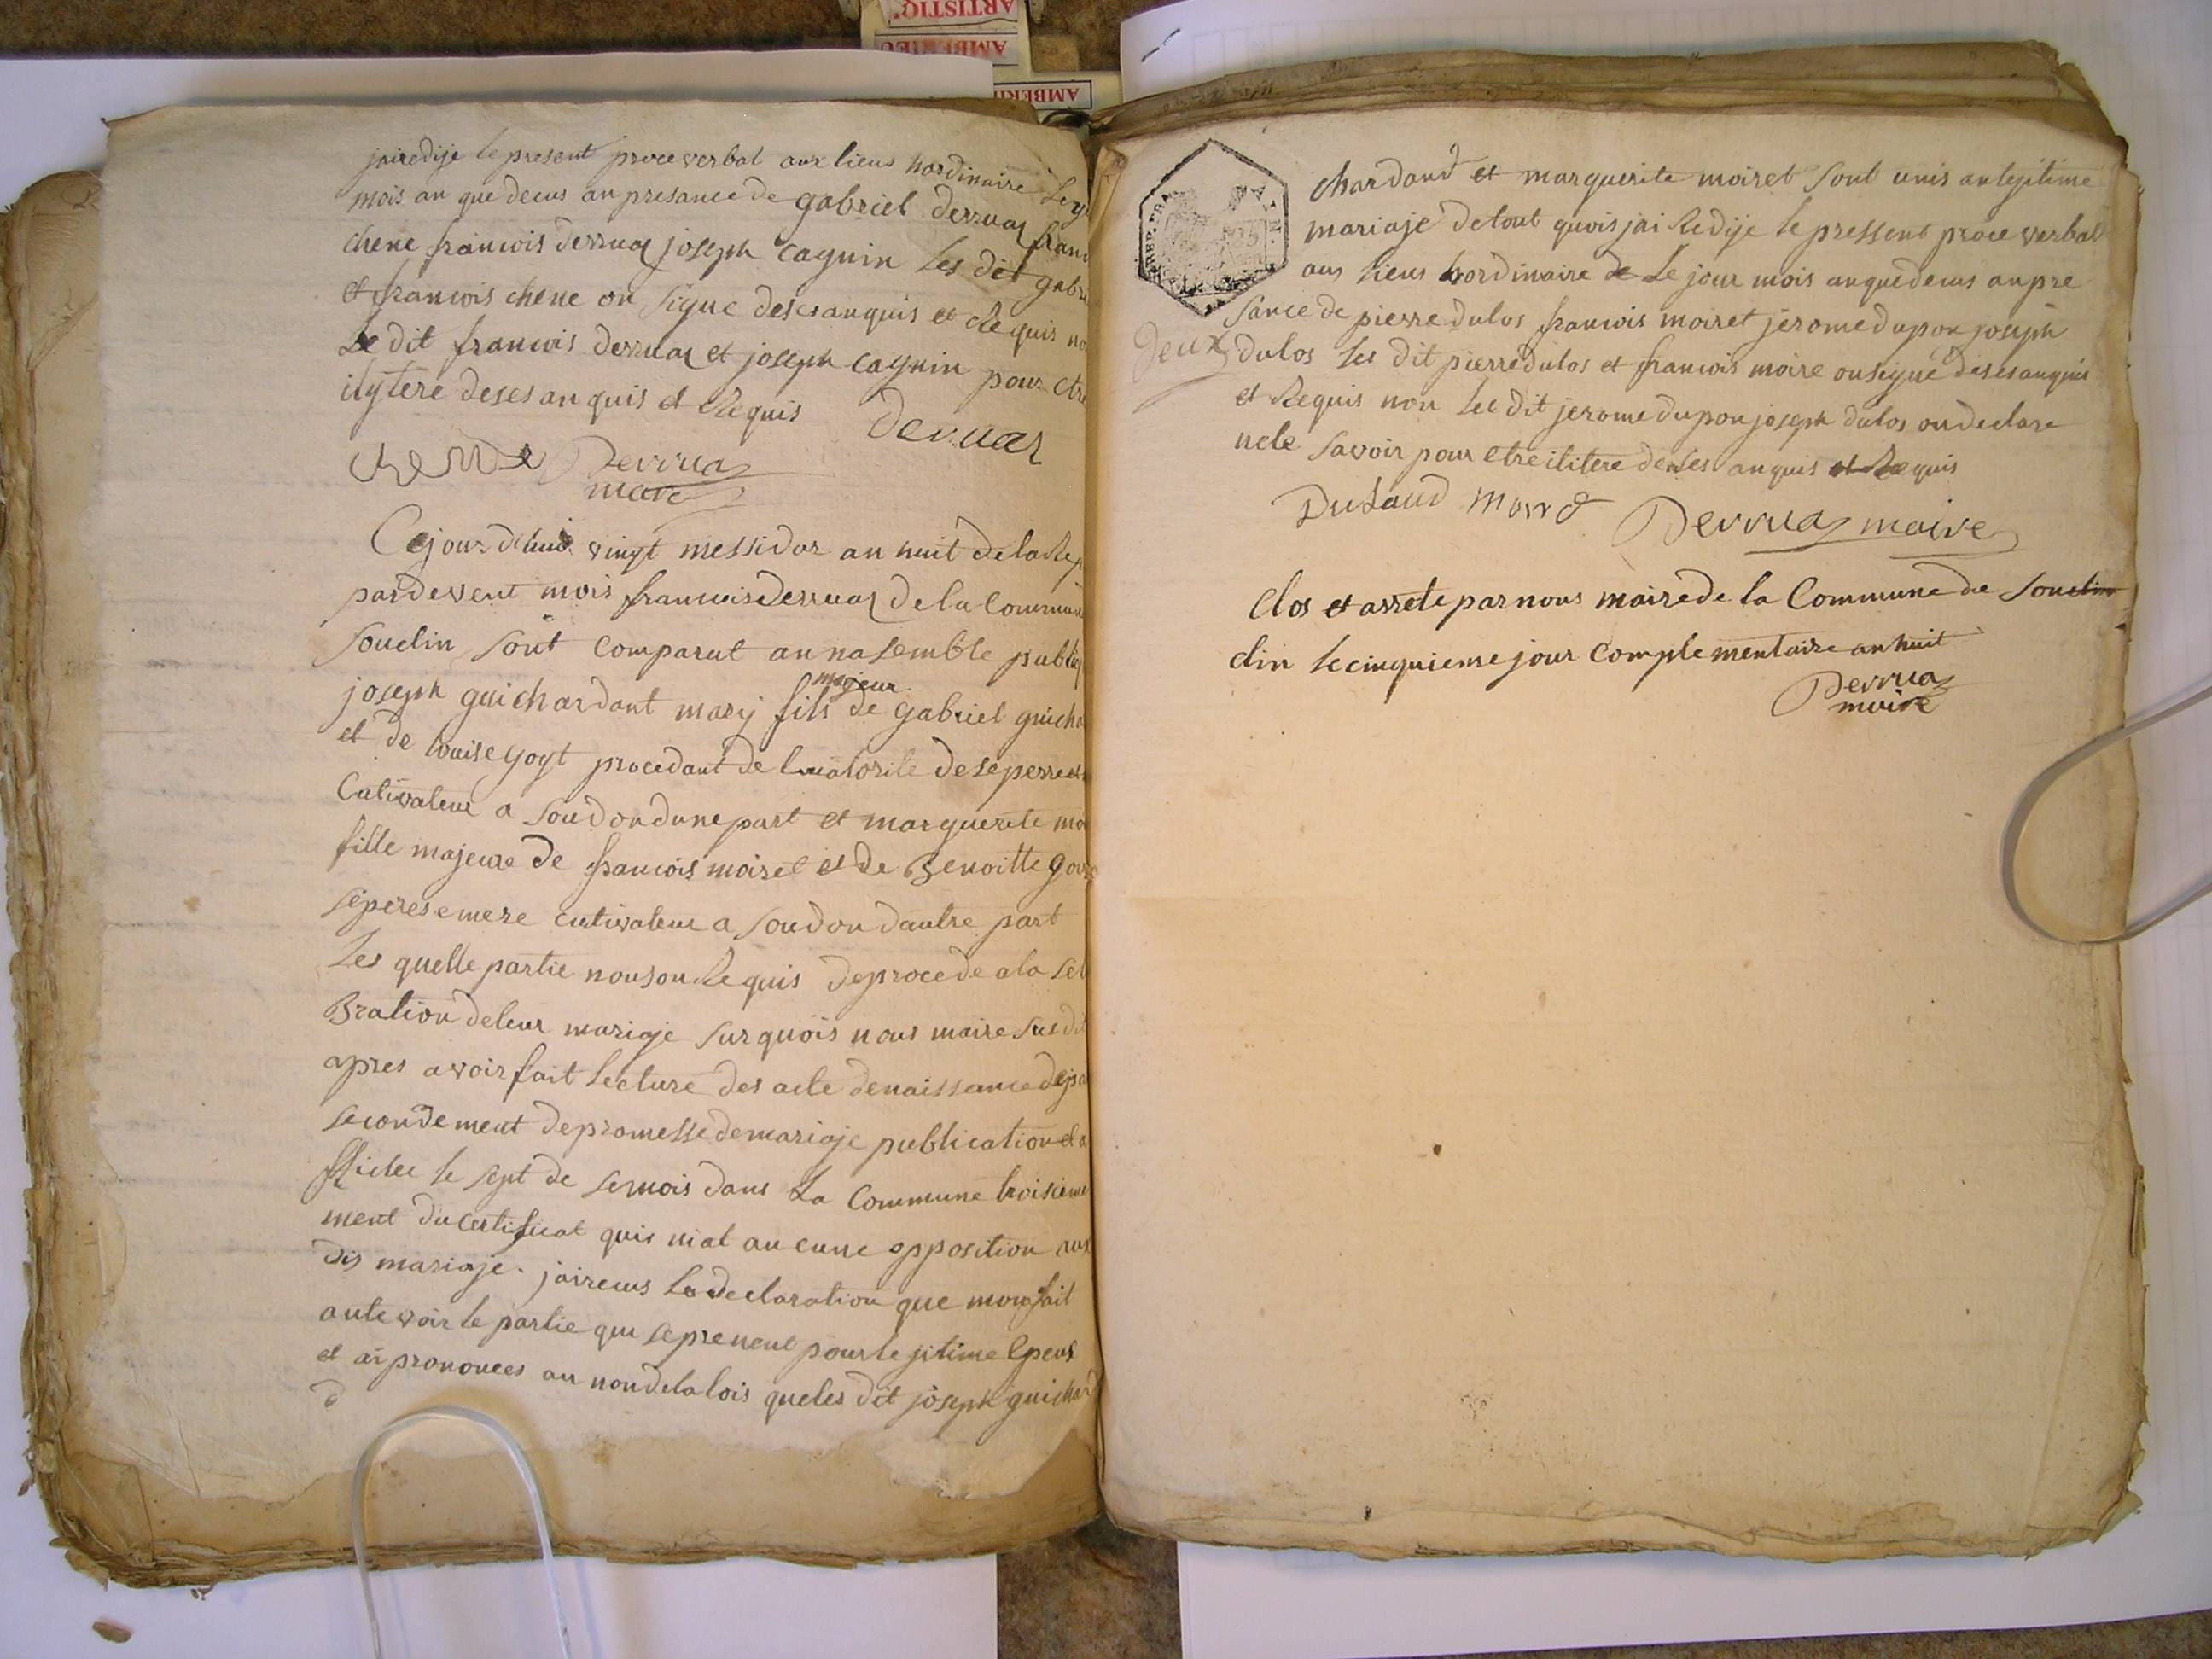 ARTISTIQ.
AMBERIEU
AMBERI
jairedije le present proce verbal aux lieus hordinaire
mois an que decus an presance de gabriel derruaz
chene francois derruaz joseph cagnin les dit gabr
et francois chene on signe desesanquis et Requis
Le dit francois derruaz et joseph cagnin pour etre
ilytere deses an quis et Requis
deruaz
chene Derruaz
mere
Cejourdhui vingt messidor an huit de la Rep
pardevent mois francoisderruaz de la Commun
souclin sont comparut an nasemble publiq
majeur
joseph guichardant mary fils de gabriel guicha
et de louise goyt procedant de lautorite de se perre
Cutivateur a soudon dune part et marguerite mo
fille majeure de francois moiret et de Benoitte
se peres e mere cutivateur a soudon dautre part
Les quelle partie nous on Requis de procede a la sel
Bration deleur mariaje sur quois nous maire susdi
apres avoir fait lecture des acte denaissance
secondement depromesse demariaje publication et a
ffichee le sept de semois dans La Commune troisieme
ment du certificat quis niat aucune opposition aux
dis mariaje. jairecus ladeclaration que mon fait
aute voir le partie qui se prenent pour lejitime Epeus
et ai prononcees au nondelalois queles dit joseph guichard
d
REP. FRA.
25
chardand et marguerite moiret sont unis anlejitime
mariaje de tout quois jai Redije le pressent proce verbal
aus lieus hordinaire de Le jour mois anquedecus anpre
sance de pierre dulos francois moiret jerome dupon joseph
Deux
dulos les dit pierre dulos et francois moire onsigne desesanquis
et Requis non Led dit jerome dupon joseph dulos ondeclare
nele savoir pour etre ilitere deses anquis et Requis
Dulaud moire
Derruaz maire
Clos et arrete par nous maire de la Commune de souclin
clin le cinquieme jour complementaire an huit
Derruaz
maire